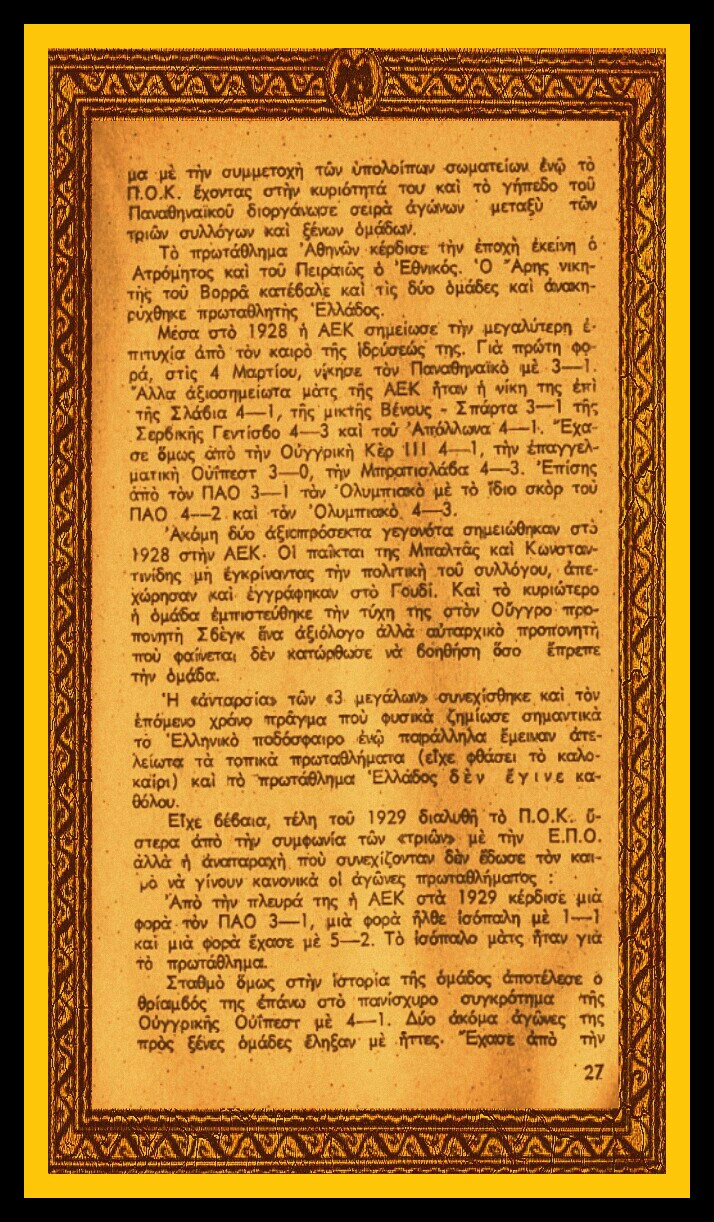 μα μὲ τὴν συμμετοχὴ τῶν ὑπολοίπων σωματείων ἐνῷ τὸ
Π.Ο.Κ. ἔχοντας στὴν κυριότητά του καὶ τὸ γήπεδο τοῦ
Παναθηναϊκοῦ διοργάνωσε σειρὰ ἀγώνων μεταξὺ τῶν
τριῶν συλλόγων καὶ ξένων ὁμάδων.
Τὸ πρωτάθλημα Ἀθηνῶν κέρδισε τὴν ἐποχὴ ἐκείνη ὁ
Ἀτρόμητος καὶ τοῦ Πειραιῶς ὁ Ἐθνικός. Ὁ Ἄρης νικη-
τὴς τοῦ Βορρᾶ κατέβαλε καὶ τὶς δύο ὁμάδες καὶ ἀνακη-
ρύχθηκε πρωταθλητὴς Ἑλλάδος.
Μέσα στὸ 1928 ἡ ΑΕΚ σημείωσε τὴν μεγαλύτερη ἐ-
πιτυχία ἀπὸ τὸν καιρὸ τῆς ἱδρύσεώς της. Γιὰ πρώτη φο-
ρά, στὶς 4 Μαρτίου, νίκησε τὸν Παναθηναϊκὸ μὲ 3—1.
Ἄλλα ἀξιοσημείωτα μὰτς τῆς ΑΕΚ ἦταν ἡ νίκη της ἐπὶ
τῆς Σλάβια 4—1, τῆς μικτῆς Βένους - Σπάρτα 3—1 τῆς
Σερβικῆς Γεντίσβο 4—3 καὶ τοῦ Ἀπόλλωνα 4—1. Ἔχα-
σε ὅμως ἀπὸ τὴν Οὐγγρικὴ Κὲρ III 4—1, τὴν ἐπαγγελ-
ματικὴ Οὔϊπεστ 3—0, τὴν Μπρατισλάβα 4—3. Ἐπίσης
ἀπὸ τὸν ΠΑΟ 3—1 τὸν Ὀλυμπιακὸ μὲ τὸ ἴδιο σκὸρ τοῦ
ΠΑΟ 4—2 καὶ τὸν Ὀλυμπιακὸ 4—3.
Ἀκόμη δύο ἀξιοπρόσεκτα γεγονότα σημειώθηκαν στὸ
1928 στὴν ΑΕΚ. Οἱ παῖκται της Μπαλτᾶς καὶ Κωνσταν-
τινίδης μὴ ἐγκρίνοντας τὴν πολιτικὴ τοῦ συλλόγου, ἀπε-
χώρησαν καὶ ἐγγράφηκαν στὸ Γουδί. Καὶ τὸ κυριώτερο
ἡ ὁμάδα ἐμπιστεύθηκε τὴν τύχη της στὸν Οὖγγρο προ-
πονητὴ Σβὲγκ ἕνα ἀξιόλογο ἀλλὰ αὐταρχικὸ προπονητὴ
ποὺ φαίνεται δὲν κατώρθωσε νὰ βοηθήση ὅσο ἔπρεπε
τὴν ὁμάδα.
Ἡ «ἀνταρσία» τῶν «3 μεγάλων» συνεχίσθηκε καὶ τὸν
ἑπόμενο χρόνο πρᾶγμα ποὺ φυσικὰ ζημίωσε σημαντικὰ
τὸ Ἑλληνικὸ ποδόσφαιρο ἐνῷ παράλληλα ἔμειναν ἀτε-
λείωτα τὰ τοπικὰ πρωταθλήματα (εἶχε φθάσει τὸ καλο-
καίρι) καὶ τὸ πρωτάθλημα Ἑλλάδος δὲν ἔγινε κα-
θόλου.
Εἶχε βέβαια, τέλη τοῦ 1929 διαλυθῆ τὸ Π.Ο.Κ. ὕ-
στερα ἀπὸ τὴν συμφωνία τῶν «τριῶν» μὲ τὴν Ε.Π.Ο.
ἀλλὰ ἡ ἀναταραχὴ ποὺ συνεχίζονταν δὲν ἔδωσε τὸν και-
ρὸ νὰ γίνουν κανονικὰ οἱ ἀγῶνες πρωταθλήματος :
Ἀπὸ τὴν πλευρά της ἡ ΑΕΚ στὰ 1929 κέρδισε μιὰ
φορὰ τὸν ΠΑΟ 3—1, μιὰ φορὰ ἦλθε ἰσόπαλη μὲ 1—1
καὶ μιὰ φορὰ ἔχασε μὲ 5—2. Τὸ ἰσόπαλο μὰτς ἦταν γιὰ
τὸ πρωτάθλημα.
Σταθμὸ ὅμως στὴν ἱστορία τῆς ὁμάδος ἀποτέλεσε ὁ
θρίαμβός της ἐπάνω στὸ πανίσχυρο συγκρότημα τῆς
Οὑγγρικῆς Οὔϊπεστ μὲ 4—1. Δύο ἀκόμα ἀγῶνες της
πρὸς ξένες ὁμάδες ἔληξαν μὲ ἧττες. Ἔχασε ἀπὸ τὴν
27